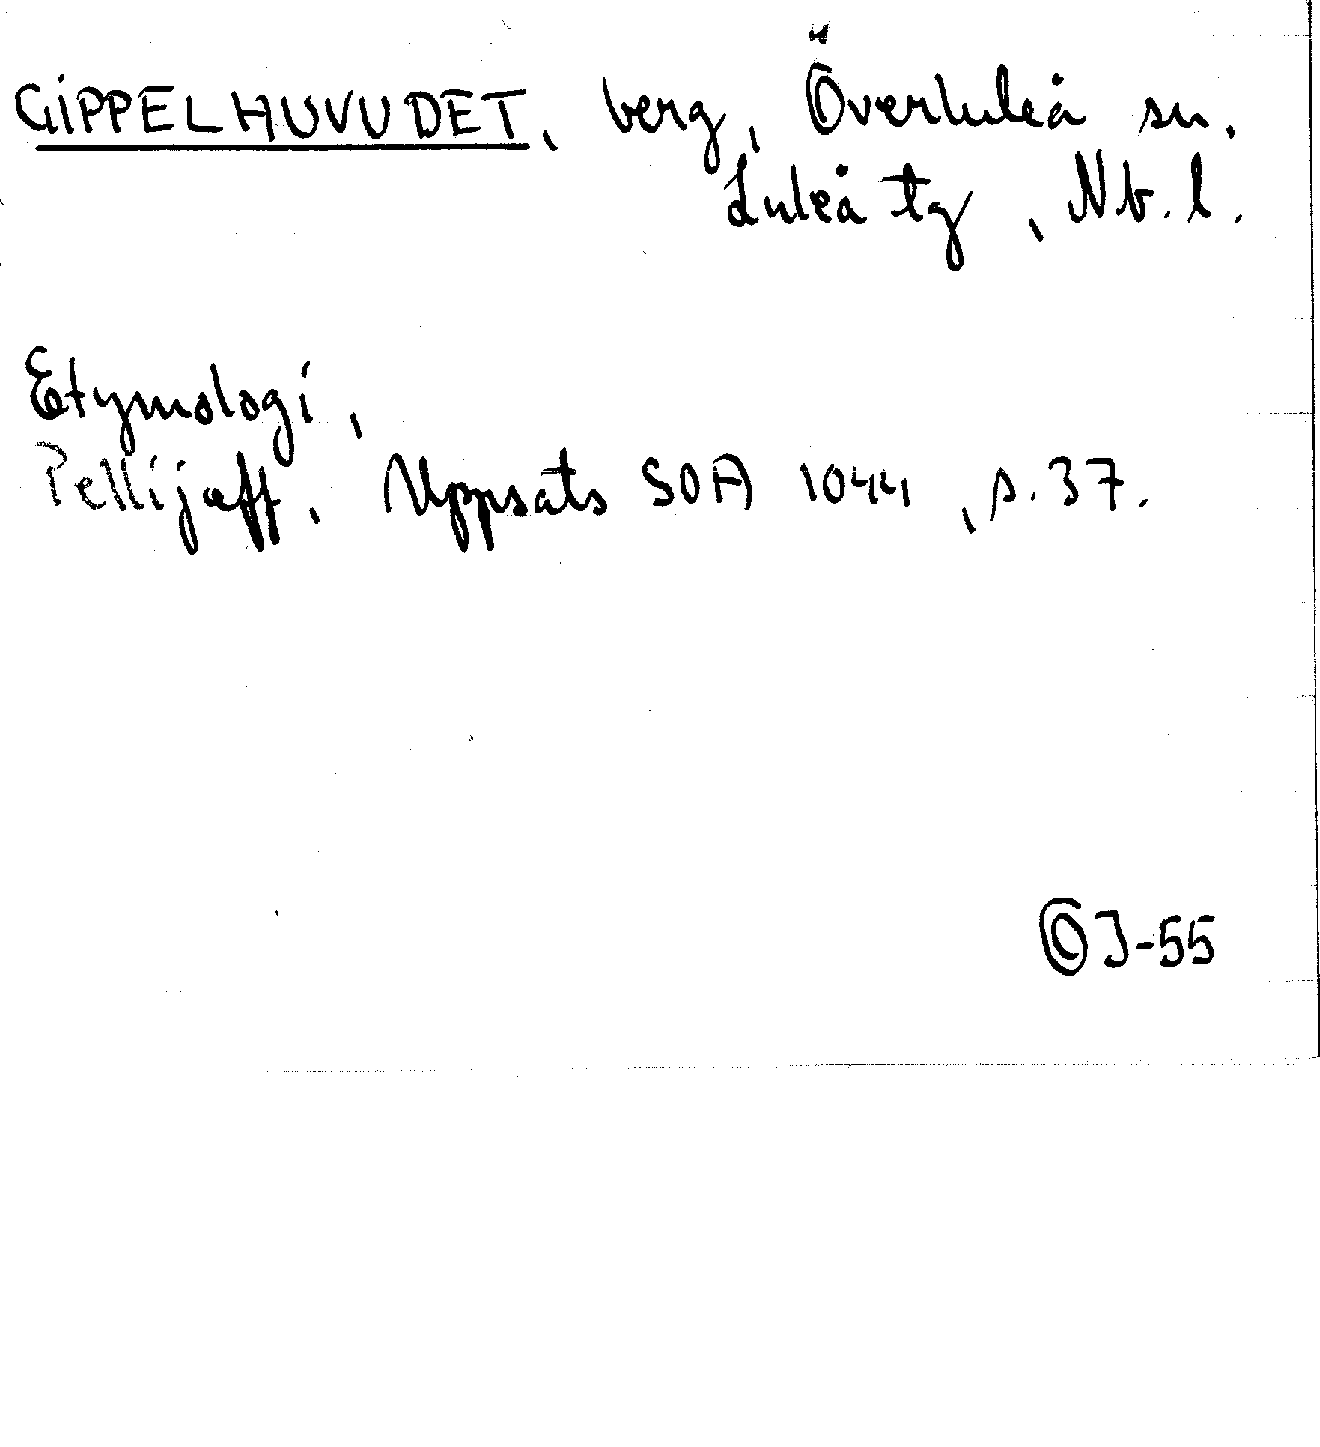 GIPPELHUVUDET, berg, Överluleå sn.
Luleå tg, Nb. l.
Etymologi,
Pellijeff, Uppsats SOA 1044, s. 37.
ÖJ-55